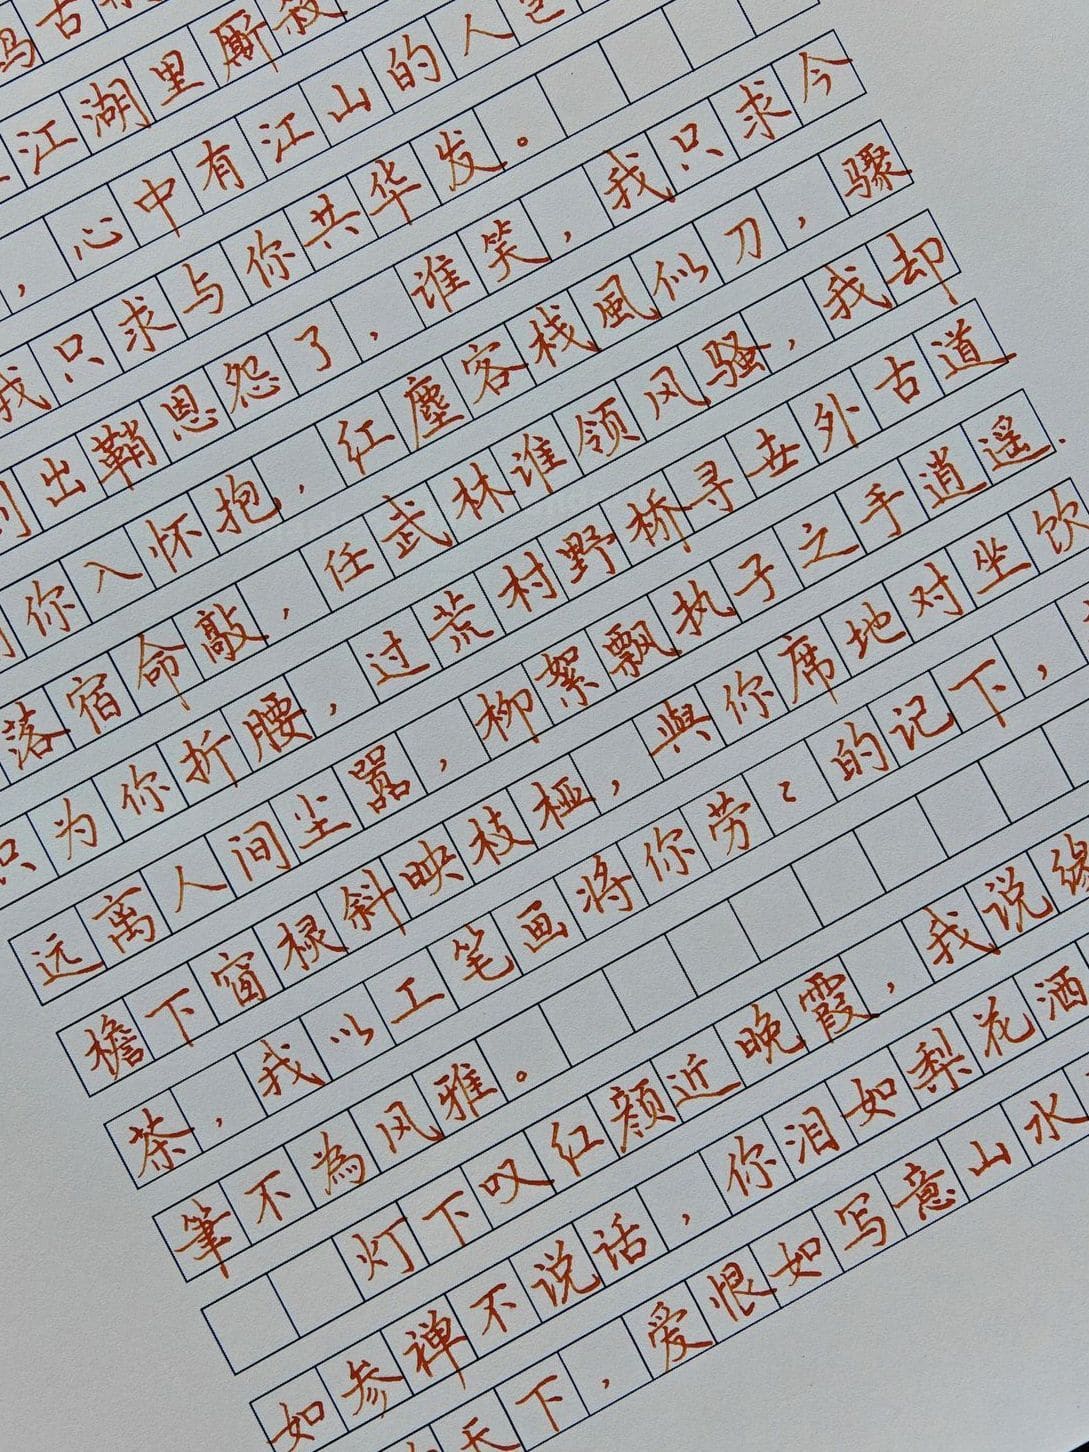 古
江湖里厮殺
，心中有江山的人
我只求与你共华发。
出鞘恩怨了，谁笑，我只求今
你入怀抱，红塵客栈風似刀，骤
落宿命敲，任武林谁领风骚，我却
只为你折腰，过荒村野桥寻世外古道
远离人间尘嚣，柳絮飘执子之手逍遥.
檐下窗棂斜映枝桠，與你席地对坐饮
茶，我以工笔画将你劳〻的记下，
筆不為风雅。
灯下叹红颜近晚霞，我说缘
如参禅不说话，你泪如梨花洒
天下，爱恨如写意山水